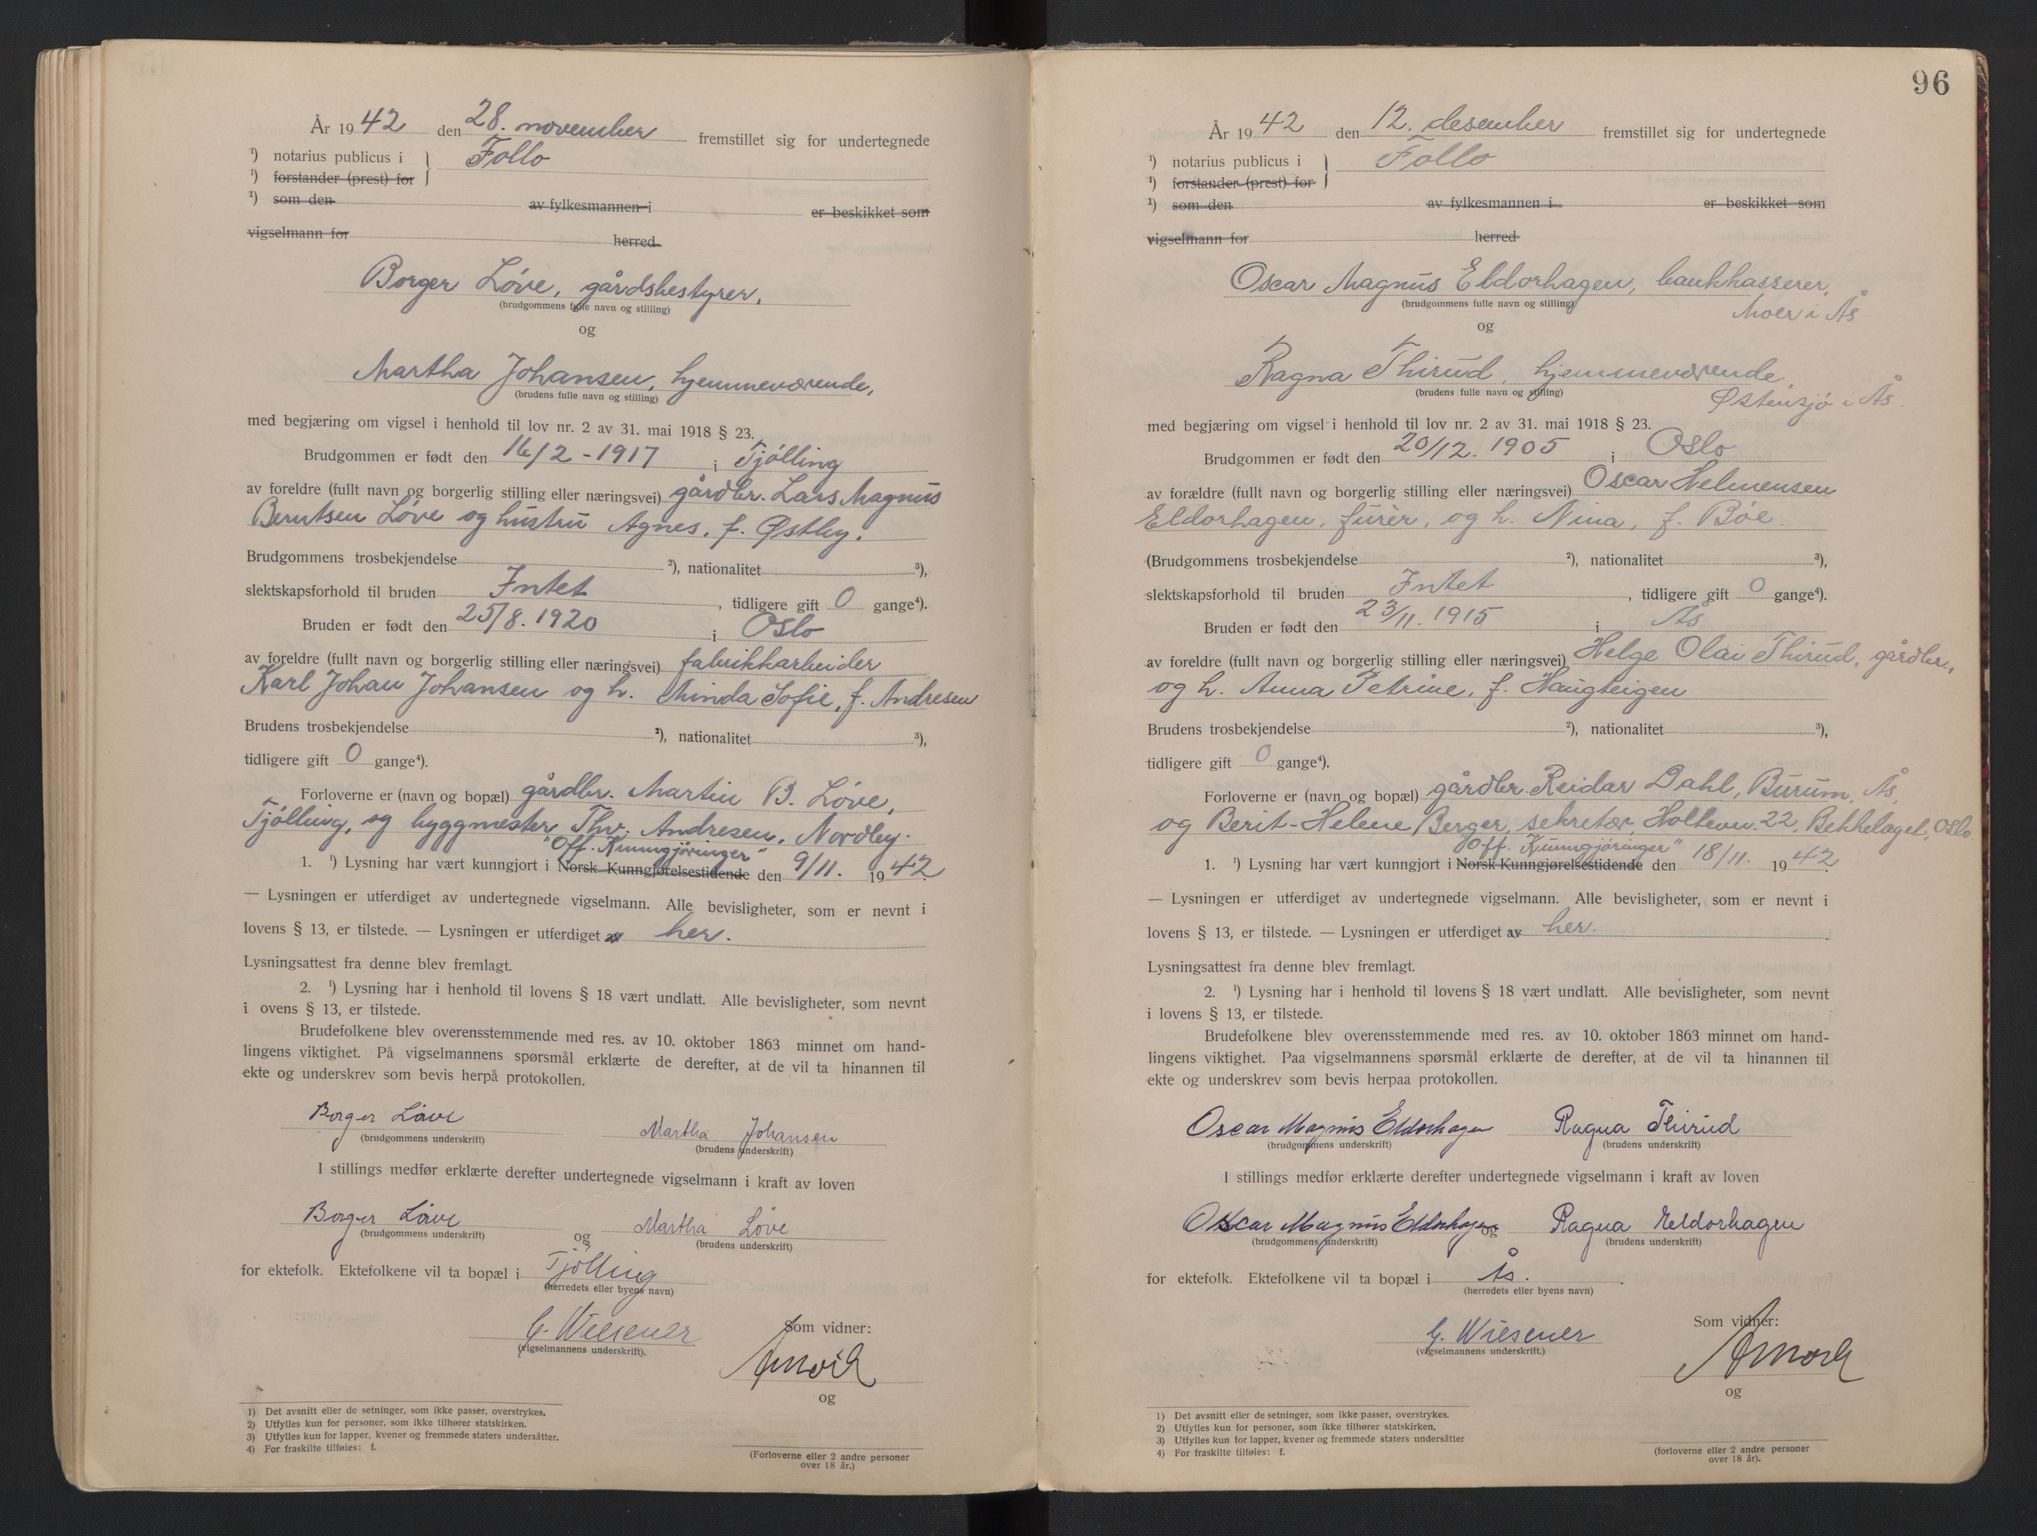 År 1942 den 28. november fremstillet sig for undertegnede
¹) notarius publicus i Follo
¹) forstander (prest) for
¹) som den av fylkesmannen i er beskikket som
vigselmann for herred
Borger Løve, gårdsbestyrer,
(brudgommens fulle navn og stilling)
og
Martha Johansen, hjemmeværende,
(brudens fulle navn og stilling)
med begjæring om vigsel i henhold til lov nr. 2 av 31. mai 1918 § 23.
Brudgommen er født den 16/2 - 1917 i Tjølling
av foreldre (fullt navn og borgerlig stilling eller næringsvei) gårdbr. Lars Magnus
Berntsen Løve og hustru Agnes, f. Østby.
Brudgommens trosbekjendelse ²), nationalitet ³),
slektskapsforhold til bruden Intet, tidligere gift 0 gange⁴).
Bruden er født den 25/8. 1920 i Oslo
av foreldre (fullt navn og borgerlig stilling eller næringsvei) fabrikkarbeider
Karl Johan Johansen og h. Minda Sofie, f. Andresen
Brudens trosbekjendelse ²), nationalitet ³),
tidligere gift 0 gange⁴).
Forloverne er (navn og bopæl) gårdbr. Martin B. Løve,
Tjølling, og byggmester Thv. Andresen, Nordby.
"Off. Kunngjøringer"
1. ¹) Lysning har vært kunngjort i Norsk Kunngjørelsestidende den 9/11. 1942.
— Lysningen er utferdiget av undertegnede vigselmann. Alle bevisligheter, som er nevnt i
lovens § 13, er tilstede. — Lysningen er utferdiget av her.
Lysningsattest fra denne blev fremlagt.
2. ¹) Lysning har i henhold til lovens § 18 vært undlatt. Alle bevisligheter, som nevnt
i ovens § 13, er tilstede.
Brudefolkene blev overensstemmende med res. av 10. oktober 1863 minnet om hand-
lingens viktighet. På vigselmannens spørsmål erklærte de derefter, at de vil ta hinannen til
ekte og underskrev som bevis herpå protokollen.
Borger Löve Martha Johansen
(brudgommens underskrift) (brudens underskrift)
I stillings medfør erklærte derefter undertegnede vigselmann i kraft av loven
Borger Löve og Martha Løve
(brudgommens underskrift) (brudens underskrift)
for ektefolk. Ektefolkene vil ta bopæl i Tjölling
(herredets eller byens navn)
G. Wiesener Som vidner:
(vigselmannens underskrift).
og
1) Det avsnitt eller de setninger, som ikke passer, overstrykes.
2) Utfylles kun for personer, som ikke tilhører statskirken.
3) Utfylles kun for lapper, kvener og fremmede staters undersåtter.
4) For fraskilte tilføies: f.
(Forloverne eller 2 andre personer
over 18 år.)
96
År 1942 den 12. desember fremstillet sig for undertegnede
¹) notarius publicus i Follo
¹) forstander (prest) for
¹) som den av fylkesmannen i er beskikket som
vigselmann for herred
Oscar Magnus Eldorhagen, bankkasserer,
(brudgommens fulle navn og stilling) Moer i Ås
og
Ragna Thirud, hjemmeværende,
(brudens fulle navn og stilling) Østensjø i Ås.
med begjæring om vigsel i henhold til lov nr. 2 av 31. mai 1918 § 23.
Brudgommen er født den 20/12. 1905 i Oslo
av forældre (fullt navn og borgerlig stilling eller næringsvei) Oscar Helmensen
Eldorhagen, furér, og h. Nina, f. Bøe.
(Brudgommens trosbekjendelse ²), nationalitet ³),
slektskapsforhold til bruden Intet, tidligere gift 0 gange⁴).
Bruden er født den 23/11. 1915 i Ås
av foreldre (fullt navn og borgerlig stilling eller næringsvei) Helge Olai Thirud, gårdbr.,
og h. Anna Petrine, f. Haugteigen
Brudens trosbekjendelse ²), nationalitet ³),
tidligere gift 0 gange⁴).
Forloverne er (navn og bopæl) gårdbr. Reidar Dahl, Burum, Ås,
og Berit-Helene Berger, sekretær, Holtevn. 22, Bekkelaget, Oslo
"Off. Kunngjøringer"
1. ¹) Lysning har vært kunngjort i Norsk Kunngjørelsestidende den 18/11. 1942.
— Lysningen er utferdiget av undertegnede vigselmann. Alle bevisligheter, som er nevnt i
lovens § 13, er tilstede. — Lysningen er utferdiget av her.
Lysningsattest fra denne blev fremlagt.
2. ¹) Lysning har i henhold til lovens § 18 vært undlatt. Alle bevisligheter, som nevnt
i lovens § 13, er tilstede.
Brudefolkene blev overensstemmende med res. av 10. oktober 1863 minnet om hand-
lingens viktighet. Paa vigselmannens spørsmål erklærte de derefter, at de vil ta hinannen til
ekte og underskrev som bevis herpaa protokollen.
Oscar Magnus Eldorhagen Ragna Thirud
(brudgommens underskrift) (brudens underskrift)
I stillings medfør erklærte derefter undertegnede vigselmann i kraft av loven
Oscar Magnus Eldorhagen og Ragna Eldorhagen
(brudgommens underskrift) (brudens underskrift)
for ektefolk. Ektefolkene vil ta bopæl i Ås.
(herredets eller byens navn)
G. Wiesener Som vidner:
(vigselmannens underskrift.)
og
1) Det avsnitt eller de setninger, som ikke passer, overstrykes.
2) Utfylles kun for personer, som ikke tilhører statskirken.
3) Utfylles kun for lapper, kvener og fremmede staters undersåtter
4) For fraskilte tilføies: f.
(forloverne eller 2 andre personer
over 18 år).